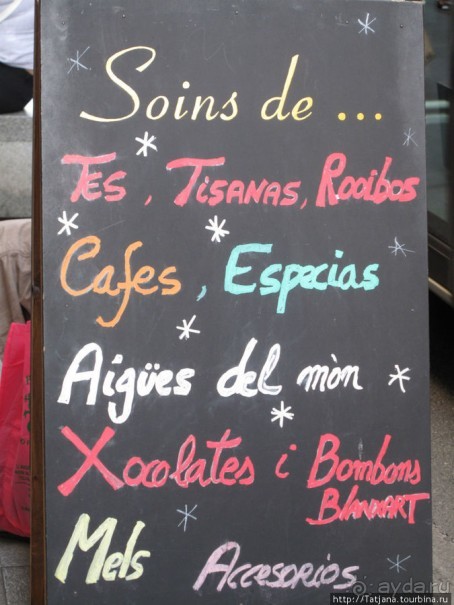 Soins de ...
TES, TISANAS, ROOIBOS
Cafes, Especias
Aigües del mòn
Xocolates i Bombons
BLANXART
Mels Accesorios
ayda.ru
http://Tatjana.tourbina.ru